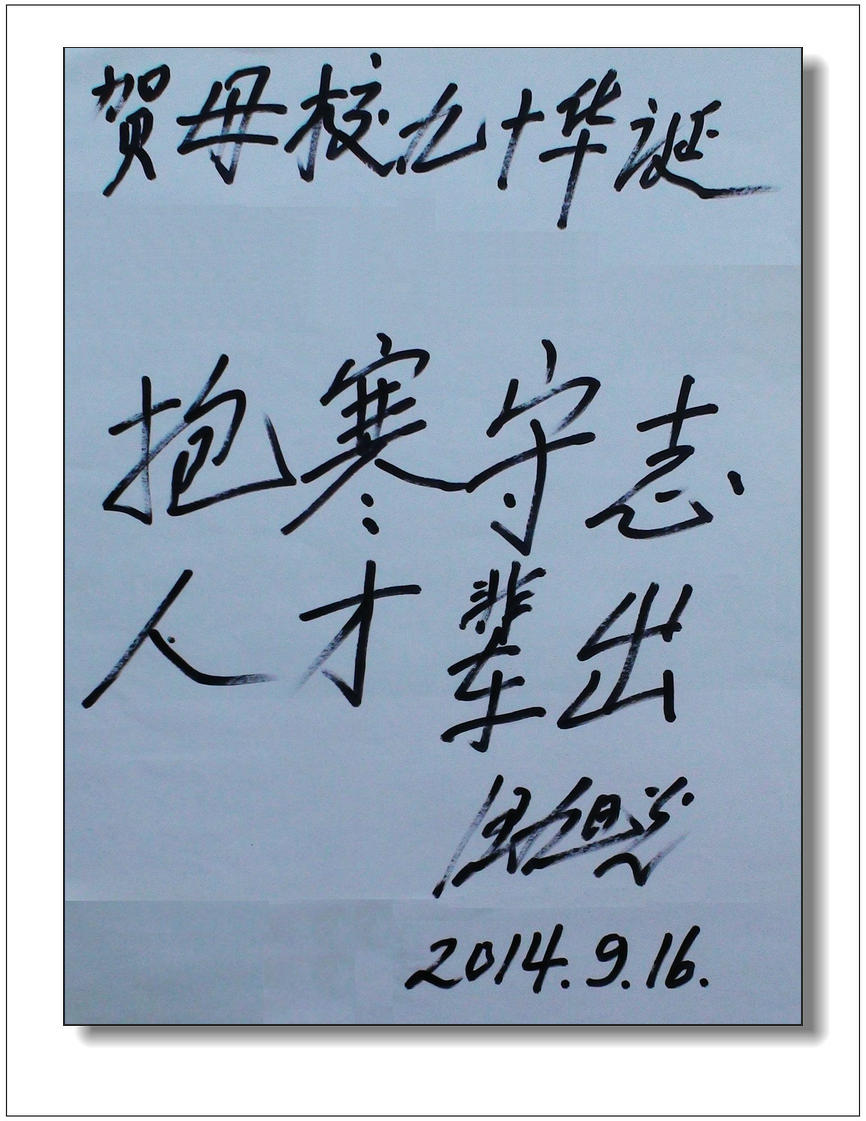 贺母校九十华诞
抱寒守志
人才辈出
2014.9.16.